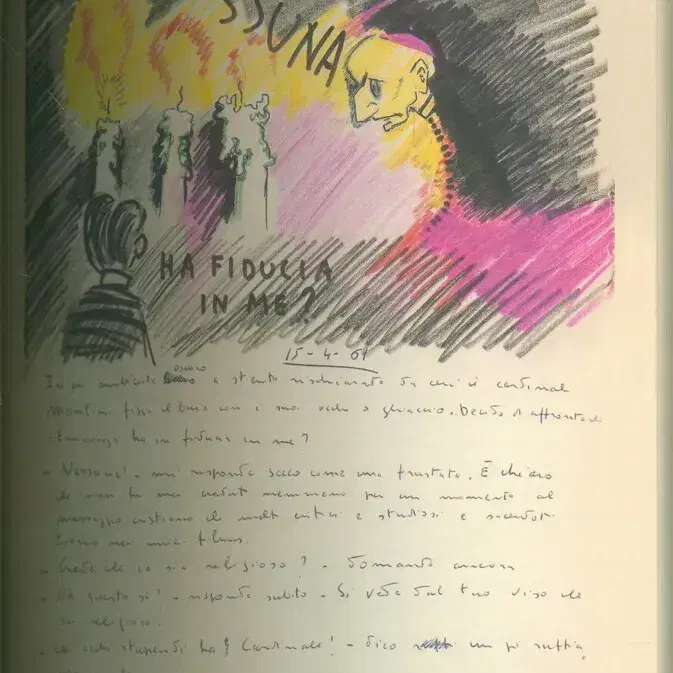 SSUNA
HA FIDUCIA
IN ME?
15-4-61
In un ambiente oscuro a stento rischiarato da ceri il cardinal
Montini fissa il buio con i suoi occhi di ghiaccio. Decido di affrontarlo
ha in fiducia in me?
- Nessuna! - mi risponde secco come una frustata. È chiaro
che non ha mai creduto nemmeno per un momento al
messaggio cristiano che molti critici e studiosi e sacerdoti
nei miei films.
- Crede che io sia religioso? - domando ancora
- Ma questo sì! - risponde subito - Si vede dal tuo viso che
sei religioso.
- Che occhi stupendi ha Cardinale! - dico un pò